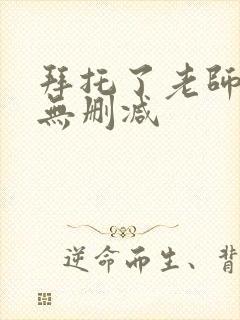 拜托了老師
無删减
逆命而生、背